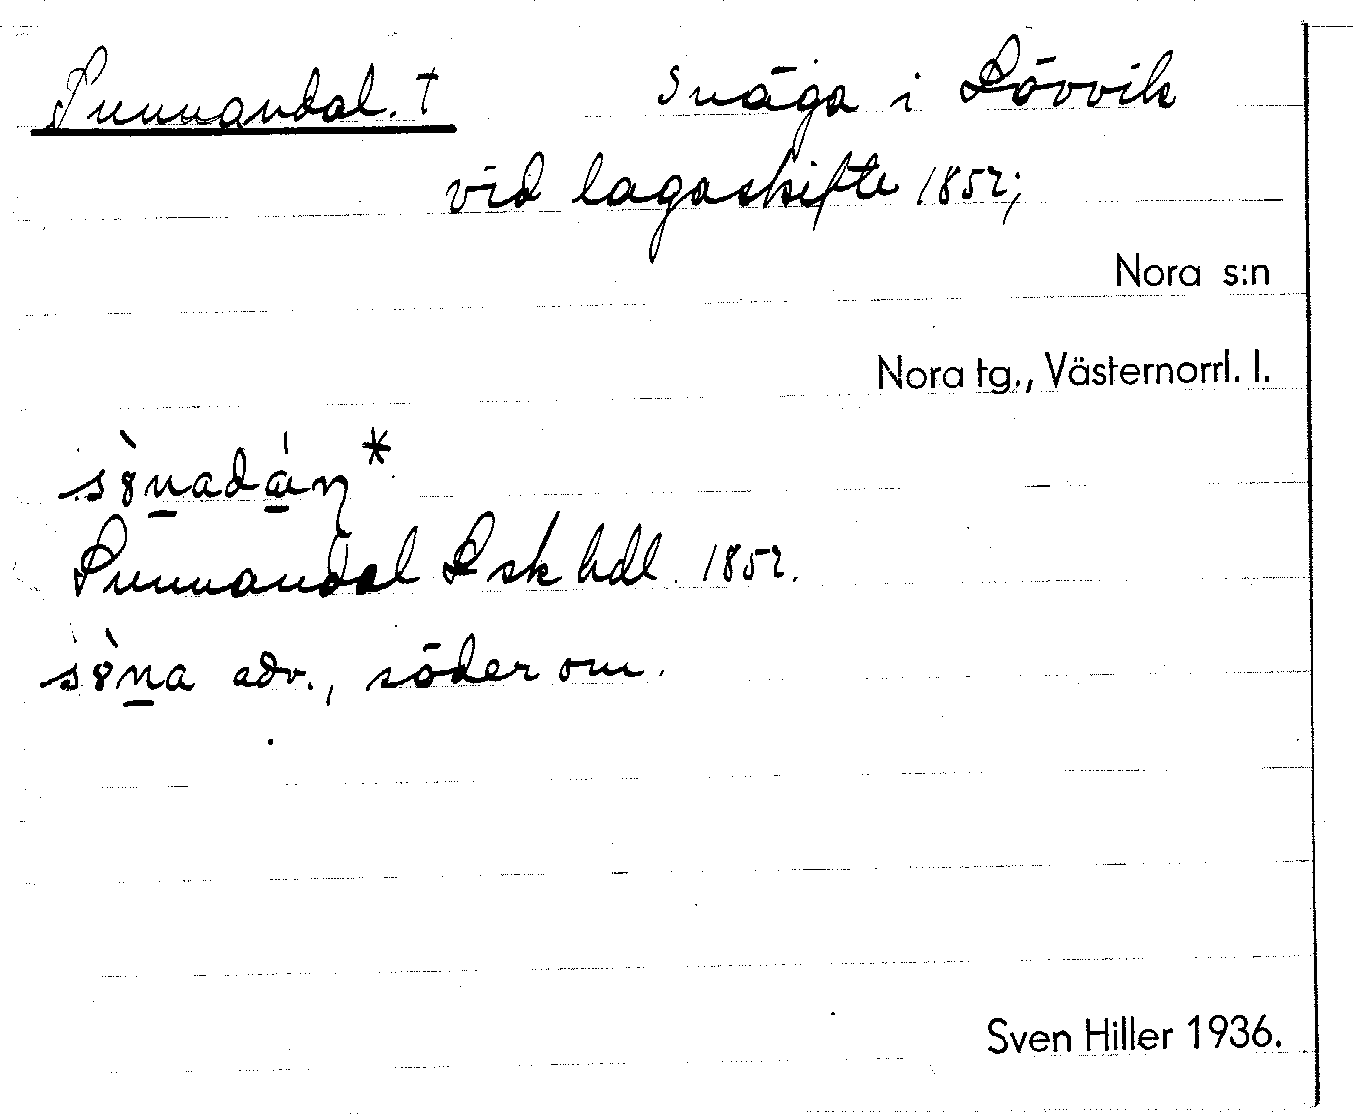 Sunnandal. † Snäga i Lövvik
vid lagaskifte 1852;
Nora s:n
Nora tg., Västernorrl. l.
Sunnandal Lsk hdl. 1852.
adv., söder om.
Sven Hiller 1936.